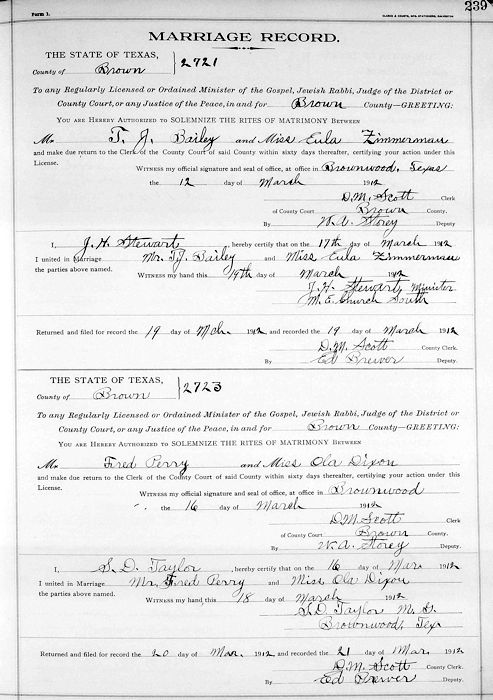 239
Form 1.
MARRIAGE RECORD.
THE STATE OF TEXAS,
County of Brown 2721
To any Regularly Licensed or Ordained Minister of the Gospel, Jewish Rabbi, Judge of the District or
County Court, or any Justice of the Peace, in and for Brown County—GREETING:
YOU ARE HEREBY AUTHORIZED TO SOLEMNIZE THE RITES OF MATRIMONY BETWEEN
Mr T. J. Bailey and Miss Eula Zimmerman
and make due return to the Clerk of the County Court of said County within sixty days thereafter, certifying your action under this
License.
WITNESS my official signature and seal of office, at office in Brownwood, Texas
the 12 day of March 1912
D. M. Scott Clerk
of County Court Brown County.
By W. A. Storey Deputy
I, J. H. Stewart, hereby certify that on the 17th day of March 1912
I united in Marriage Mr. T J. Bailey and Miss Eula Zimmerman
the parties above named. WITNESS my hand this 19th day of March 1912
J. H. Stewart, Minister
M. E. Church South
Returned and filed for record the 19 day of Mch. 1912 and recorded the 19 day of March 1912
D. M. Scott County Clerk.
By Ed Brewer Deputy.
THE STATE OF TEXAS,
County of Brown 2723
To any Regularly Licensed or Ordained Minister of the Gospel, Jewish Rabbi, Judge of the District or
County Court, or any Justice of the Peace, in and for Brown County—GREETING:
YOU ARE HEREBY AUTHORIZED TO SOLEMNIZE THE RITES OF MATRIMONY BETWEEN
Mr Fred Perry and Miss Ola Dixon
and make due return to the Clerk of the County Court of said County within sixty days thereafter, certifying your action under this
License.
WITNESS my official signature and seal of office, at office in Brownwood
the 16 day of March 1912
D. M. Scott Clerk
of County Court Brown County.
By W. A. Storey Deputy.
I, S. D. Taylor, hereby certify that on the 16 day of Mar. 1912
I united in Marriage Mr. Fred Perry and Miss Ola Dixon
the parties above named. WITNESS my hand this 18 day of March 1912
S. D. Taylor M. G.
Brownwood, Tex
Returned and filed for record the 20 day of Mar. 1912 and recorded the 21 day of Mar. 1912
D. M. Scott County Clerk.
By Ed Brewer Deputy.